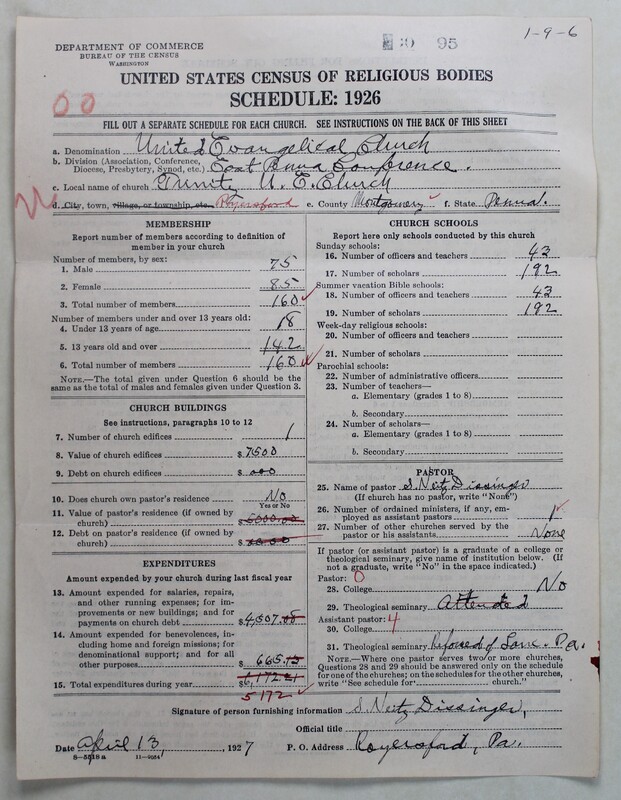 1-9-6
DEPARTMENT OF COMMERCE
BUREAU OF THE CENSUS
WASHINGTON
95
UNITED STATES CENSUS OF RELIGIOUS BODIES
SCHEDULE: 1926
00
FILL OUT A SEPARATE SCHEDULE FOR EACH CHURCH. SEE INSTRUCTIONS ON THE BACK OF THIS SHEET
a. Denomination United Evangelical Church
b. Division (Association, Conference, Diocese, Presbytery, Synod, etc.) East Penna Conference.
c. Local name of church Trinity U. E. Church
d. City, town, village, or township, etc. Royersford e. County Montgomery f. State Penna.
MEMBERSHIP
Report number of members according to definition of member in your church
Number of members, by sex:
1. Male 75
2. Female 85
3. Total number of members 160
Number of members under and over 13 years old:
4. Under 13 years of age 18
5. 13 years old and over 142
6. Total number of members 160
NOTE.—The total given under Question 6 should be the same as the total of males and females given under Question 3.
CHURCH BUILDINGS
See instructions, paragraphs 10 to 12
7. Number of church edifices 1
8. Value of church edifices $7500
9. Debt on church edifices $000
10. Does church own pastor's residence No
Yes or No
11. Value of pastor's residence (if owned by church) $
12. Debt on pastor's residence (if owned by church) $
EXPENDITURES
Amount expended by your church during last fiscal year
13. Amount expended for salaries, repairs, and other running expenses; for improvements or new buildings; and for payments on church debt $4,507.08
14. Amount expended for benevolences, including home and foreign missions; for denominational support; and for all other purposes 665.13
15. Total expenditures during year $
5172
CHURCH SCHOOLS
Report here only schools conducted by this church
Sunday schools:
16. Number of officers and teachers 43
17. Number of scholars 192
Summer vacation Bible schools:
18. Number of officers and teachers 43
19. Number of scholars 192
Week-day religious schools:
20. Number of officers and teachers
21. Number of scholars
Parochial schools:
22. Number of administrative officers
23. Number of teachers—
a. Elementary (grades 1 to 8)
b. Secondary
24. Number of scholars—
a. Elementary (grades 1 to 8)
b. Secondary
PASTOR
25. Name of pastor S. Neitz Dissinger
(If church has no pastor, write "None")
26. Number of ordained ministers, if any, employed as assistant pastors 1
27. Number of other churches served by the pastor or his assistants None
If pastor (or assistant pastor) is a graduate of a college or theological seminary, give name of institution below. (If not a graduate, write "No" in the space indicated.)
Pastor: 0
28. College No
29. Theological seminary Attended
Assistant pastor: 4
30. College
31. Theological seminary Reformed of Lanc. Pa.
NOTE.—Where one pastor serves two or more churches, Questions 28 and 29 should be answered only on the schedule for one of the churches; on the schedules for the other churches, write "See schedule for church."
Signature of person furnishing information S. Neitz Dissinger,
Official title
Date April 13, 1927 P. O. Address Royersford, Pa.
8-5518a 11-9054